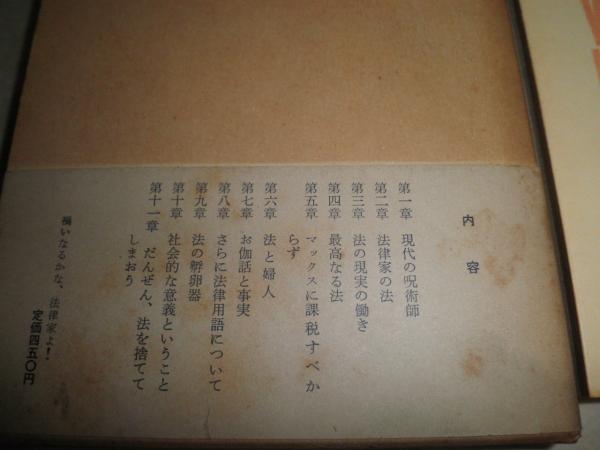 内容
第一章 現代の呪術師
第二章 法律家の法
第三章 法の現実の働き
第四章 最高なる法
第五章 マックスに課税すべか
らず
第六章 法と婦人
第七章 お伽話と事実
第八章 さらに法律用語について
第九章 法の孵卵器
第十章 社会的な意義ということ
第十一章 だんぜん、法を捨てて
しまおう
禍いなるかな、法律家よ!
定価四五〇円